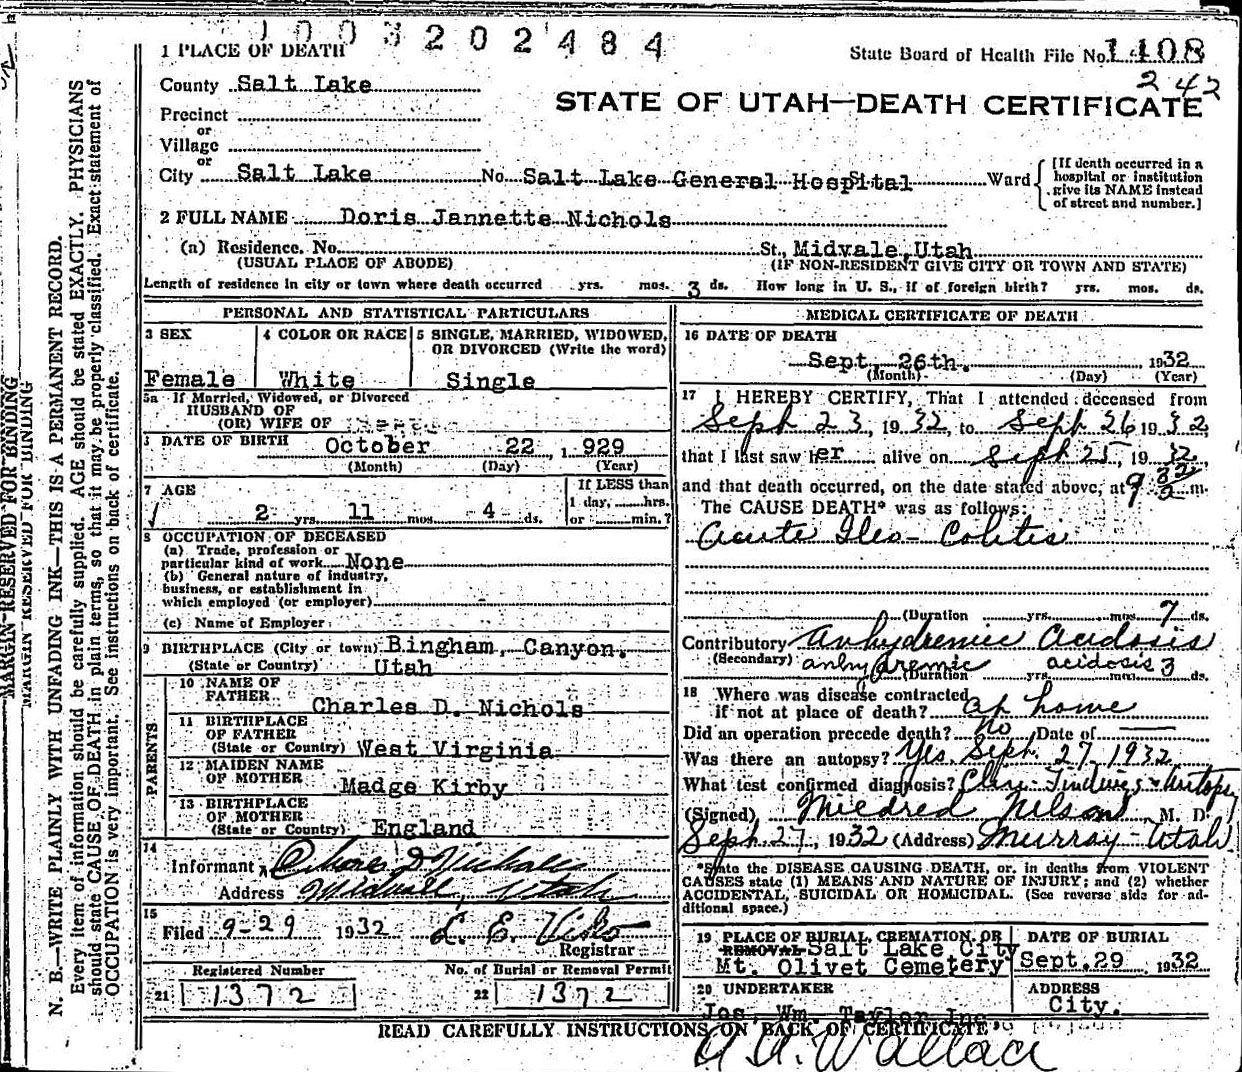 1003202484
1 PLACE OF DEATH
State Board of Health File No. 1408
242
County Salt Lake
STATE OF UTAH—DEATH CERTIFICATE
Precinct
or
Village
or
City Salt Lake No. Salt Lake General Hospital Ward
[If death occurred in a
hospital or institution
give its NAME instead
of street and number.]
2 FULL NAME Doris Jannette Nichols
(a) Residence. No. St., Midvale, Utah
(USUAL PLACE OF ABODE) (IF NON-RESIDENT GIVE CITY OR TOWN AND STATE)
Length of residence in city or town where death occurred yrs. mos. 3 ds. How long in U. S., if of foreign birth? yrs. mos. ds.
PERSONAL AND STATISTICAL PARTICULARS
3 SEX 4 COLOR OR RACE 5 SINGLE, MARRIED, WIDOWED,
OR DIVORCED (Write the word)
Female White Single
5a If Married, Widowed, or Divorced
HUSBAND OF
(OR) WIFE OF
DATE OF BIRTH October 22, 1929
(Month) (Day) (Year)
7 AGE If LESS than
1 day, hrs.
2 yrs. 11 mos. 4 ds. or min.?
8 OCCUPATION OF DECEASED
(a) Trade, profession or
particular kind of work None
(b) General nature of industry,
business, or establishment in
which employed (or employer)
(c) Name of Employer
9 BIRTHPLACE (City or town) Bingham, Canyon.
(State or Country) Utah
PARENTS
10 NAME OF
FATHER Charles D. Nichols
11 BIRTHPLACE
OF FATHER
(State or Country) West Virginia
12 MAIDEN NAME
OF MOTHER Madge Kirby
13 BIRTHPLACE
OF MOTHER
(State or Country) England
14
Informant Charles D Nichols
Address Midvale, Utah
15
Filed 9-29 1932
Registrar
Registered Number No. of Burial or Removal Permit
21 1372 22 1372
MEDICAL CERTIFICATE OF DEATH
16 DATE OF DEATH
Sept. 26th. 1932
(Month) (Day) (Year)
17 I HEREBY CERTIFY, That I attended deceased from
Sept 23, 1932, to Sept 26 1932,
that I last saw her alive on Sept 25, 1932,
and that death occurred, on the date stated above, at 9 m.
The CAUSE DEATH* was as follows:
Acute Ileo-Colitis
(Duration yrs. mos. 7 ds.
Contributory Anhydremic Acidosis
(Secondary) anhydremic acidosis 3
(Duration yrs. mos. ds.
18 Where was disease contracted
if not at place of death? at home
Did an operation precede death? No Date of —
Was there an autopsy? Yes. Sept. 27, 1932
What test confirmed diagnosis? Clin. Findings & Autopsy
(Signed) Mildred Nelson M. D.
Sept. 27, 1932 (Address) Murray-Utah
*State the DISEASE CAUSING DEATH, or, in deaths from VIOLENT
CAUSES state (1) MEANS AND NATURE OF INJURY; and (2) whether
ACCIDENTAL, SUICIDAL OR HOMICIDAL. (See reverse side for ad-
ditional space.)
19 PLACE OF BURIAL, CREMATION, OR DATE OF BURIAL
REMOVAL Salt Lake City
Mt. Olivet Cemetery Sept. 29 1932
20 UNDERTAKER ADDRESS
Jos. Wm. Taylor Inc. City.
READ CAREFULLY INSTRUCTIONS ON BACK OF CERTIFICATE
Wallace
MARGIN RESERVED FOR BINDING
MARGIN RESERVED FOR BINDING
N. B.—WRITE PLAINLY WITH UNFADING INK—THIS IS A PERMANENT RECORD.
Every item of information should be carefully supplied. AGE should be stated EXACTLY. PHYSICIANS
should state CAUSE OF DEATH in plain terms, so that it may be properly classified. Exact statement of
OCCUPATION is very important. See instructions on back of certificate.